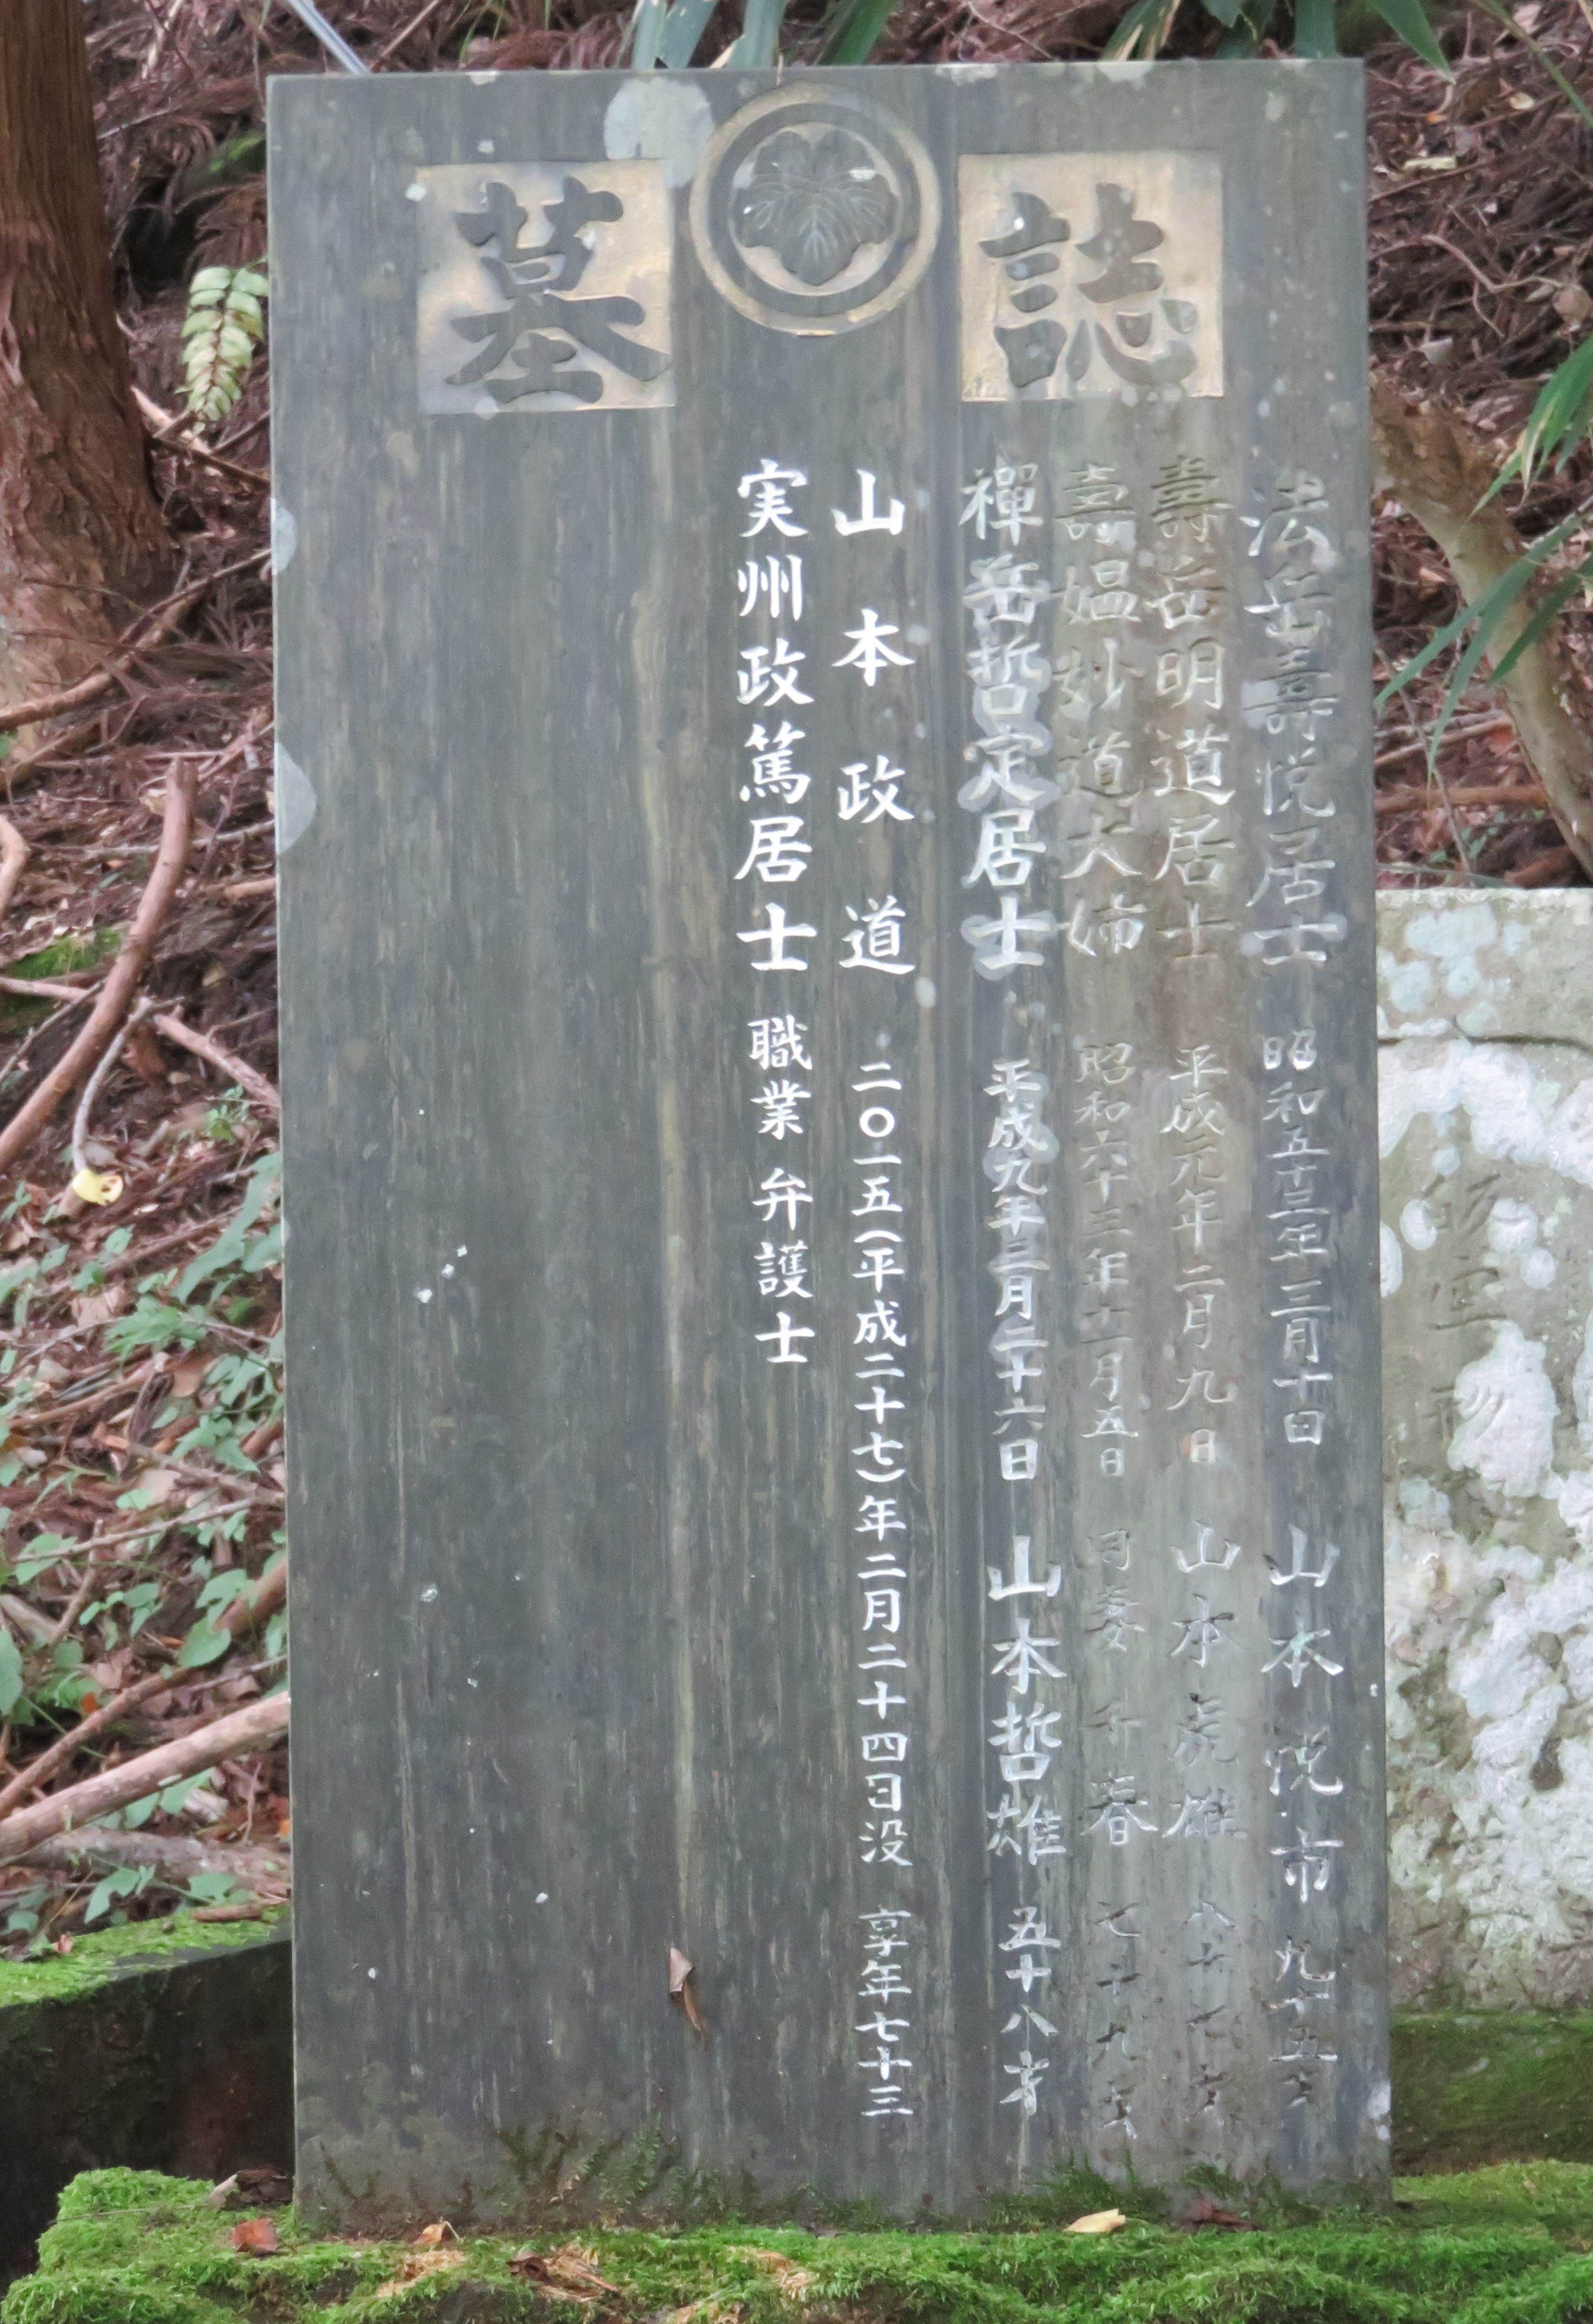 墓誌
法岳壽悦居士 昭和五十三年三月十日 山本悦市 九十五才
壽岳明道居士 平成元年二月九日 山本虎雄
壽媼妙道大姉 昭和六十三年十一月五日 同妻 千春 七十九才
禪岳哲定居士 平成九年三月二十六日 山本哲雄 五十八才
山本政道 二〇一五(平成二十七)年二月二十四日没 享年七十三
実州政篤居士 職業 弁護士